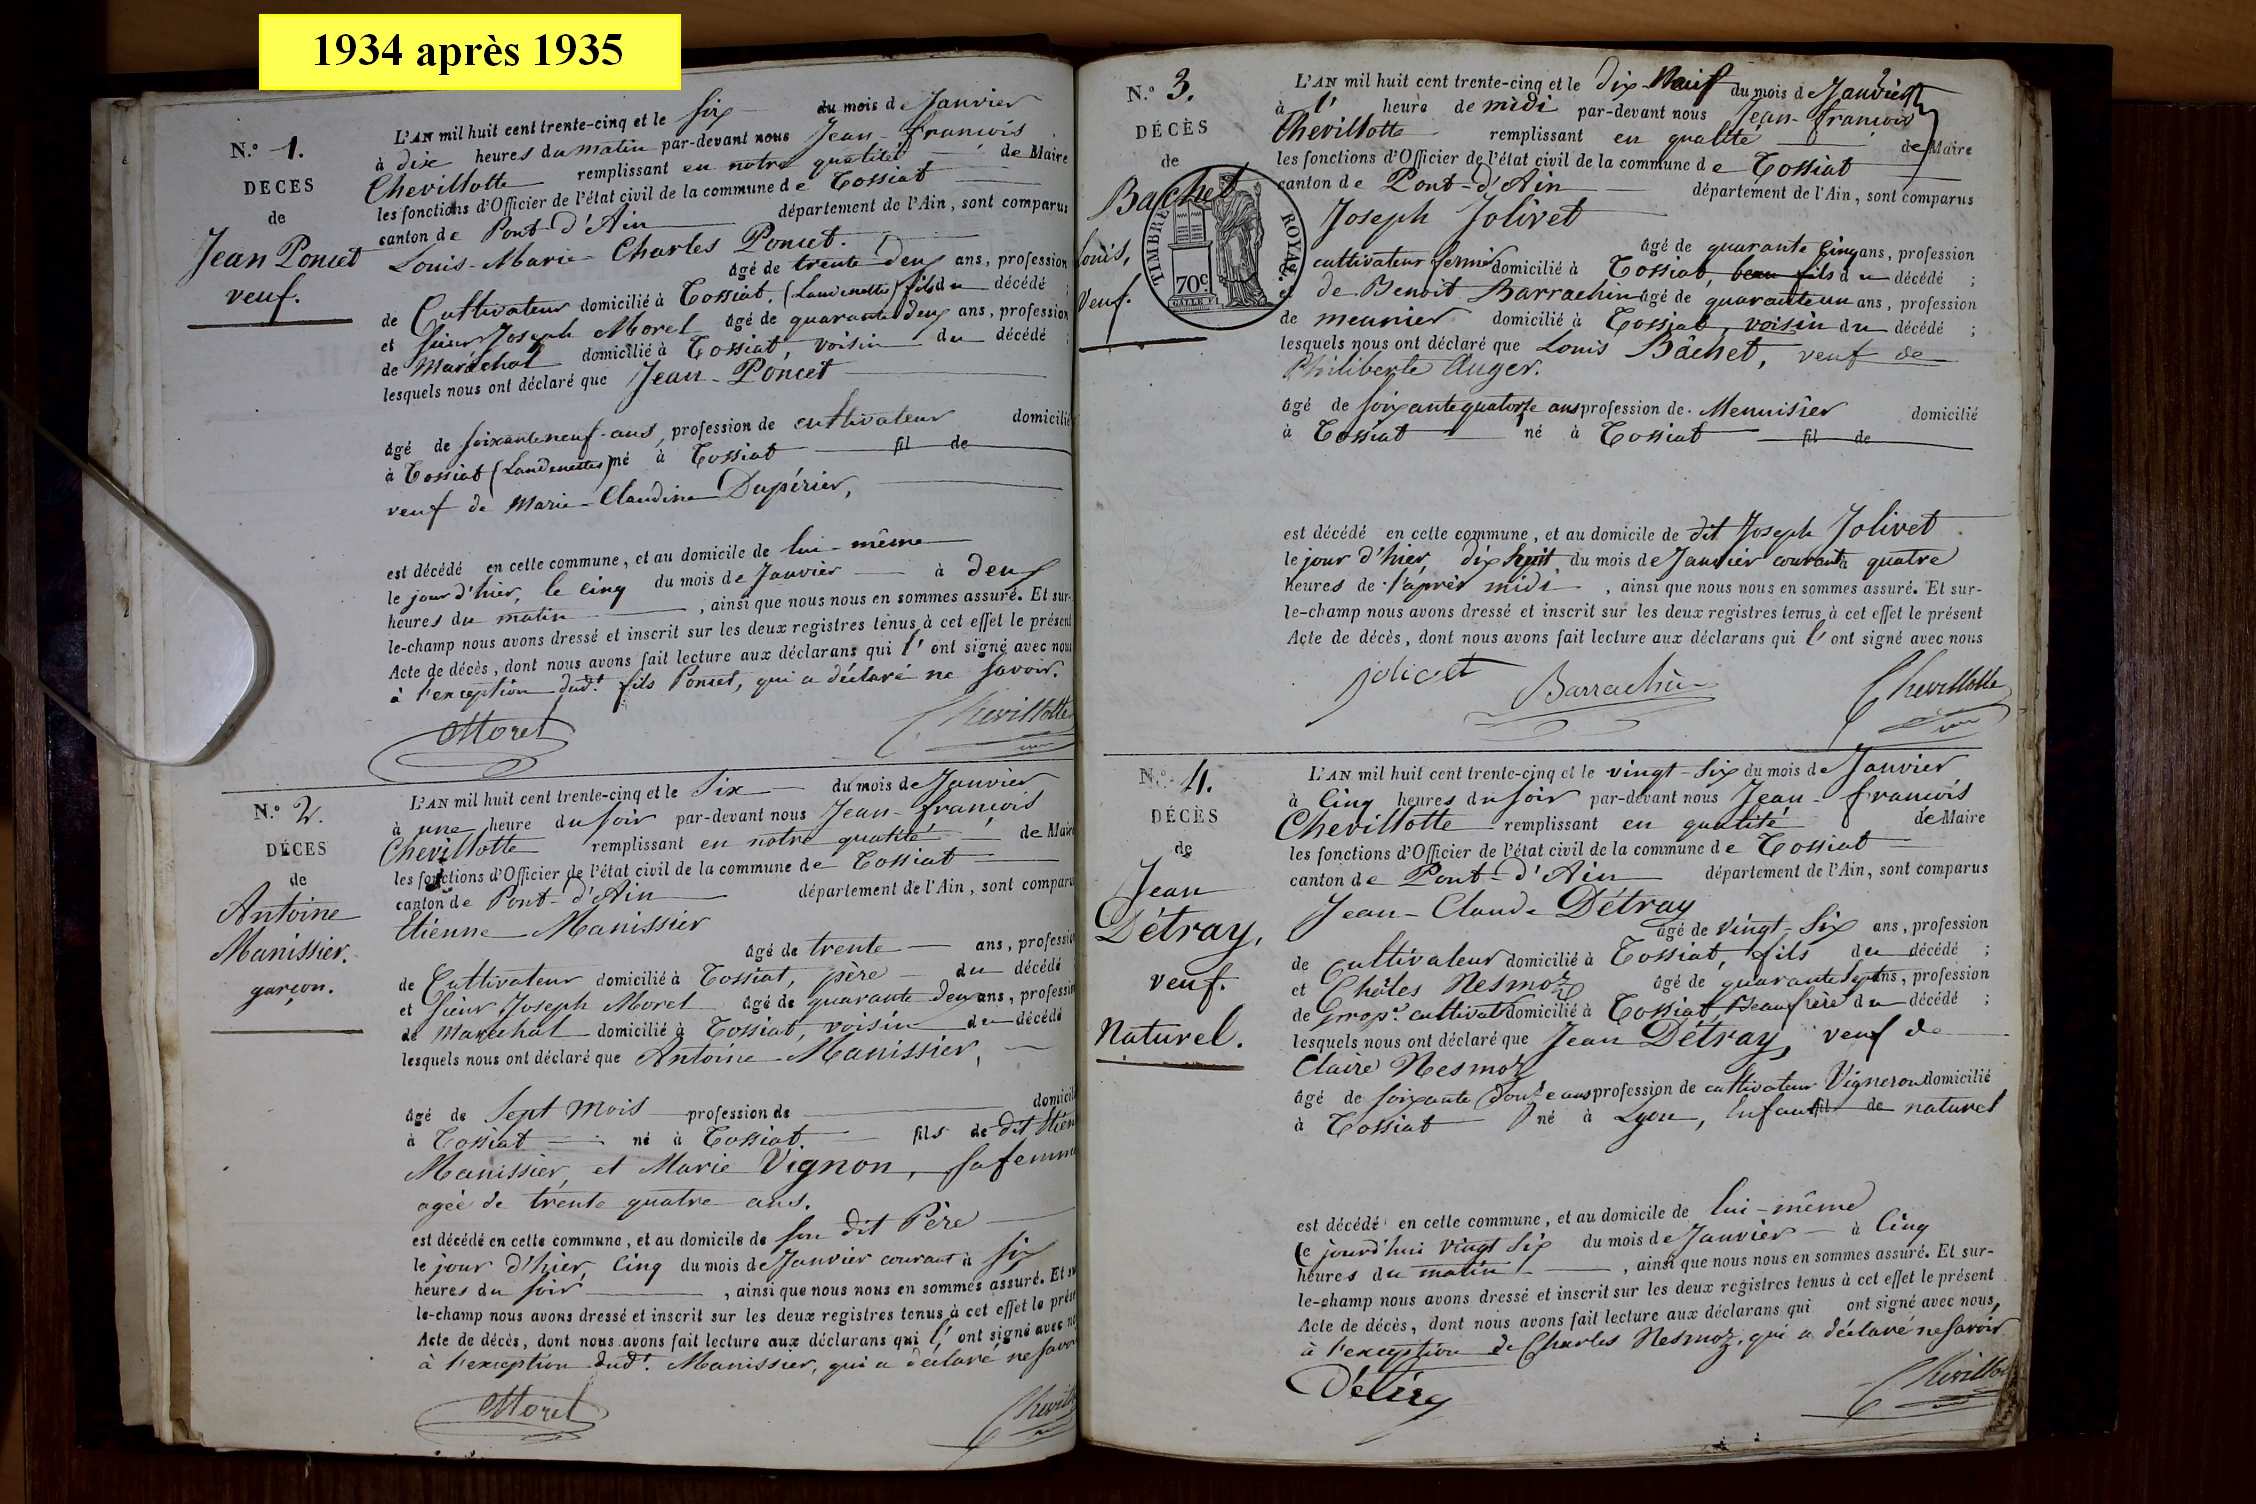 1934 après 1935
N.º 1.
DÉCES
de
Jean Poncet
veuf.
L'AN mil huit cent trente-cinq et le six du mois de Janvier
à dix heures du matin par-devant nous Jean-françois
Chevillotte remplissant en notre qualité de Maire
les fonctions d'Officier de l'état civil de la commune de Tossiat
canton de Pont-d'Ain département de l'Ain, sont comparus
Louis-Marie-Charles Poncet.
âgé de trente deux ans, profession
de Cultivateur domicilié à Tossiat, (Landenettes) fils du décédé ;
et sieur Joseph Morel âgé de quarante deux ans, profession
de Maréchal domicilié à Tossiat, voisin du décédé ;
lesquels nous ont déclaré que Jean-Poncet
âgé de soixante neuf-ans, profession de cultivateur domicilié
à Tossiat (Landenettes) né à Tossiat fil de
veuf de Marie-Claudine Dupérier,
est décédé en cette commune, et au domicile de lui-même
le jour d'hier, le cinq du mois de Janvier à deux
heures du matin, ainsi que nous nous en sommes assuré. Et sur-
le-champ nous avons dressé et inscrit sur les deux registres tenus à cet effet le présent
Acte de décès, dont nous avons fait lecture aux déclarans qui l'ont signé avec nous
à l'exception dudt. fils Poncet, qui a déclaré ne savoir.
Morel Chevillotte
N.º 2.
DÉCES
de
Antoine
Manissier.
garçon.
L'AN mil huit cent trente-cinq et le Six du mois de Janvier
à une heure du soir par-devant nous Jean-françois
Chevillotte remplissant en notre qualité de Maire
les fonctions d'Officier de l'état civil de la commune de Tossiat
canton de Pont-d'Ain département de l'Ain, sont comparu
Etienne Manissier
âgé de trente ans, profession
de Cultivateur domicilié à Tossiat, père du décédé
et sieur Joseph Morel âgé de quarante deux ans, profession
de Maréchal domicilié à Tossiat, voisin du décédé
lesquels nous ont déclaré que Antoine Manissier,
âgé de Sept mois profession de domicil
à Tossiat né à Tossiat. fils de dit Etien
Manissier, et Marie Vignon, sa femme
agée de trente quatre ans.
est décédé en cette commune, et au domicile de son dit Père
le jour d'hier, Cinq du mois de Janvier courant à six
heures du soir, ainsi que nous nous en sommes assuré. Et su
le-champ nous avons dressé et inscrit sur les deux registres tenus à cet effet le prése
Acte de décès, dont nous avons fait lecture aux déclarans qui l'ont signé avec no
à l'exception dudt. Manissier, qui a déclaré ne savoir
Morel Chevill
N.º 3.
DÉCÈS
de
Bachet
Louis,
Veuf.
TIMBRE ROYAL.
70c
L'AN mil huit cent trente-cinq et le dix-Neuf du mois de Janvier
à 1' heure de midi par-devant nous Jean-françois
Chevillotte remplissant en qualité de Maire
les fonctions d'Officier de l'état civil de la commune de Tossiat
canton de Pont-d'Ain département de l'Ain, sont comparus
Joseph Jolivet
âgé de quarante Cinq ans, profession
cultivateur fermier domicilié à Tossiat, beau fils du décédé ;
de Benoit Barrachin âgé de quarante un ans, profession
de meunier domicilié à Tossiat, voisin du décédé ;
lesquels nous ont déclaré que Louis Bâchet, veuf de
Philiberte Auger.
âgé de soixante quatorze ans profession de Menuisier domicilié
à Tossiat né à Tossiat fil de
est décédé en cette commune, et au domicile de dit Joseph Jolivet
le jour d'hier, dix huit du mois de Janvier courant à quatre
heures de l'après midi, ainsi que nous nous en sommes assuré. Et sur-
le-champ nous avons dressé et inscrit sur les deux registres tenus à cet effet le présent
Acte de décès, dont nous avons fait lecture aux déclarans qui l'ont signé avec nous
jolivet Barrachin Chevillotte
N.º 4.
DÉCÈS
de
Jean
Détray,
veuf.
Naturel.
L'AN mil huit cent trente-cinq et le vingt-Six du mois de Janvier
à Cinq heures du soir par-devant nous Jean-françois
Chevillotte remplissant en qualité de Maire
les fonctions d'Officier de l'état civil de la commune de Tossiat
canton de Pont-d'Ain département de l'Ain, sont comparus
Jean-Claude Détray
âgé de vingt-Six ans, profession
de cultivateur domicilié à Tossiat, fils du décédé ;
et Charles Nesmoz âgé de quarante Sept ans, profession
de propr. cultivatr domicilié à Tossiat, Beau frère du décédé ;
lesquels nous ont déclaré que Jean Détray, veuf de
Claire Nesmoz
âgé de soixante Douze ans profession de cultivateur Vigneron domicilié
à Tossiat né à Lyon, Enfant fil de naturel
est décédé en cette commune, et au domicile de lui-même
ce jourd'hui vingt Six du mois de Janvier à Cinq
heures du matin, ainsi que nous nous en sommes assuré. Et sur-
le-champ nous avons dressé et inscrit sur les deux registres tenus à cet effet le présent
Acte de décès, dont nous avons fait lecture aux déclarans qui ont signé avec nous,
à l'exception de Charles Nesmoz, qui a déclaré ne savoir
Détray Chevillot